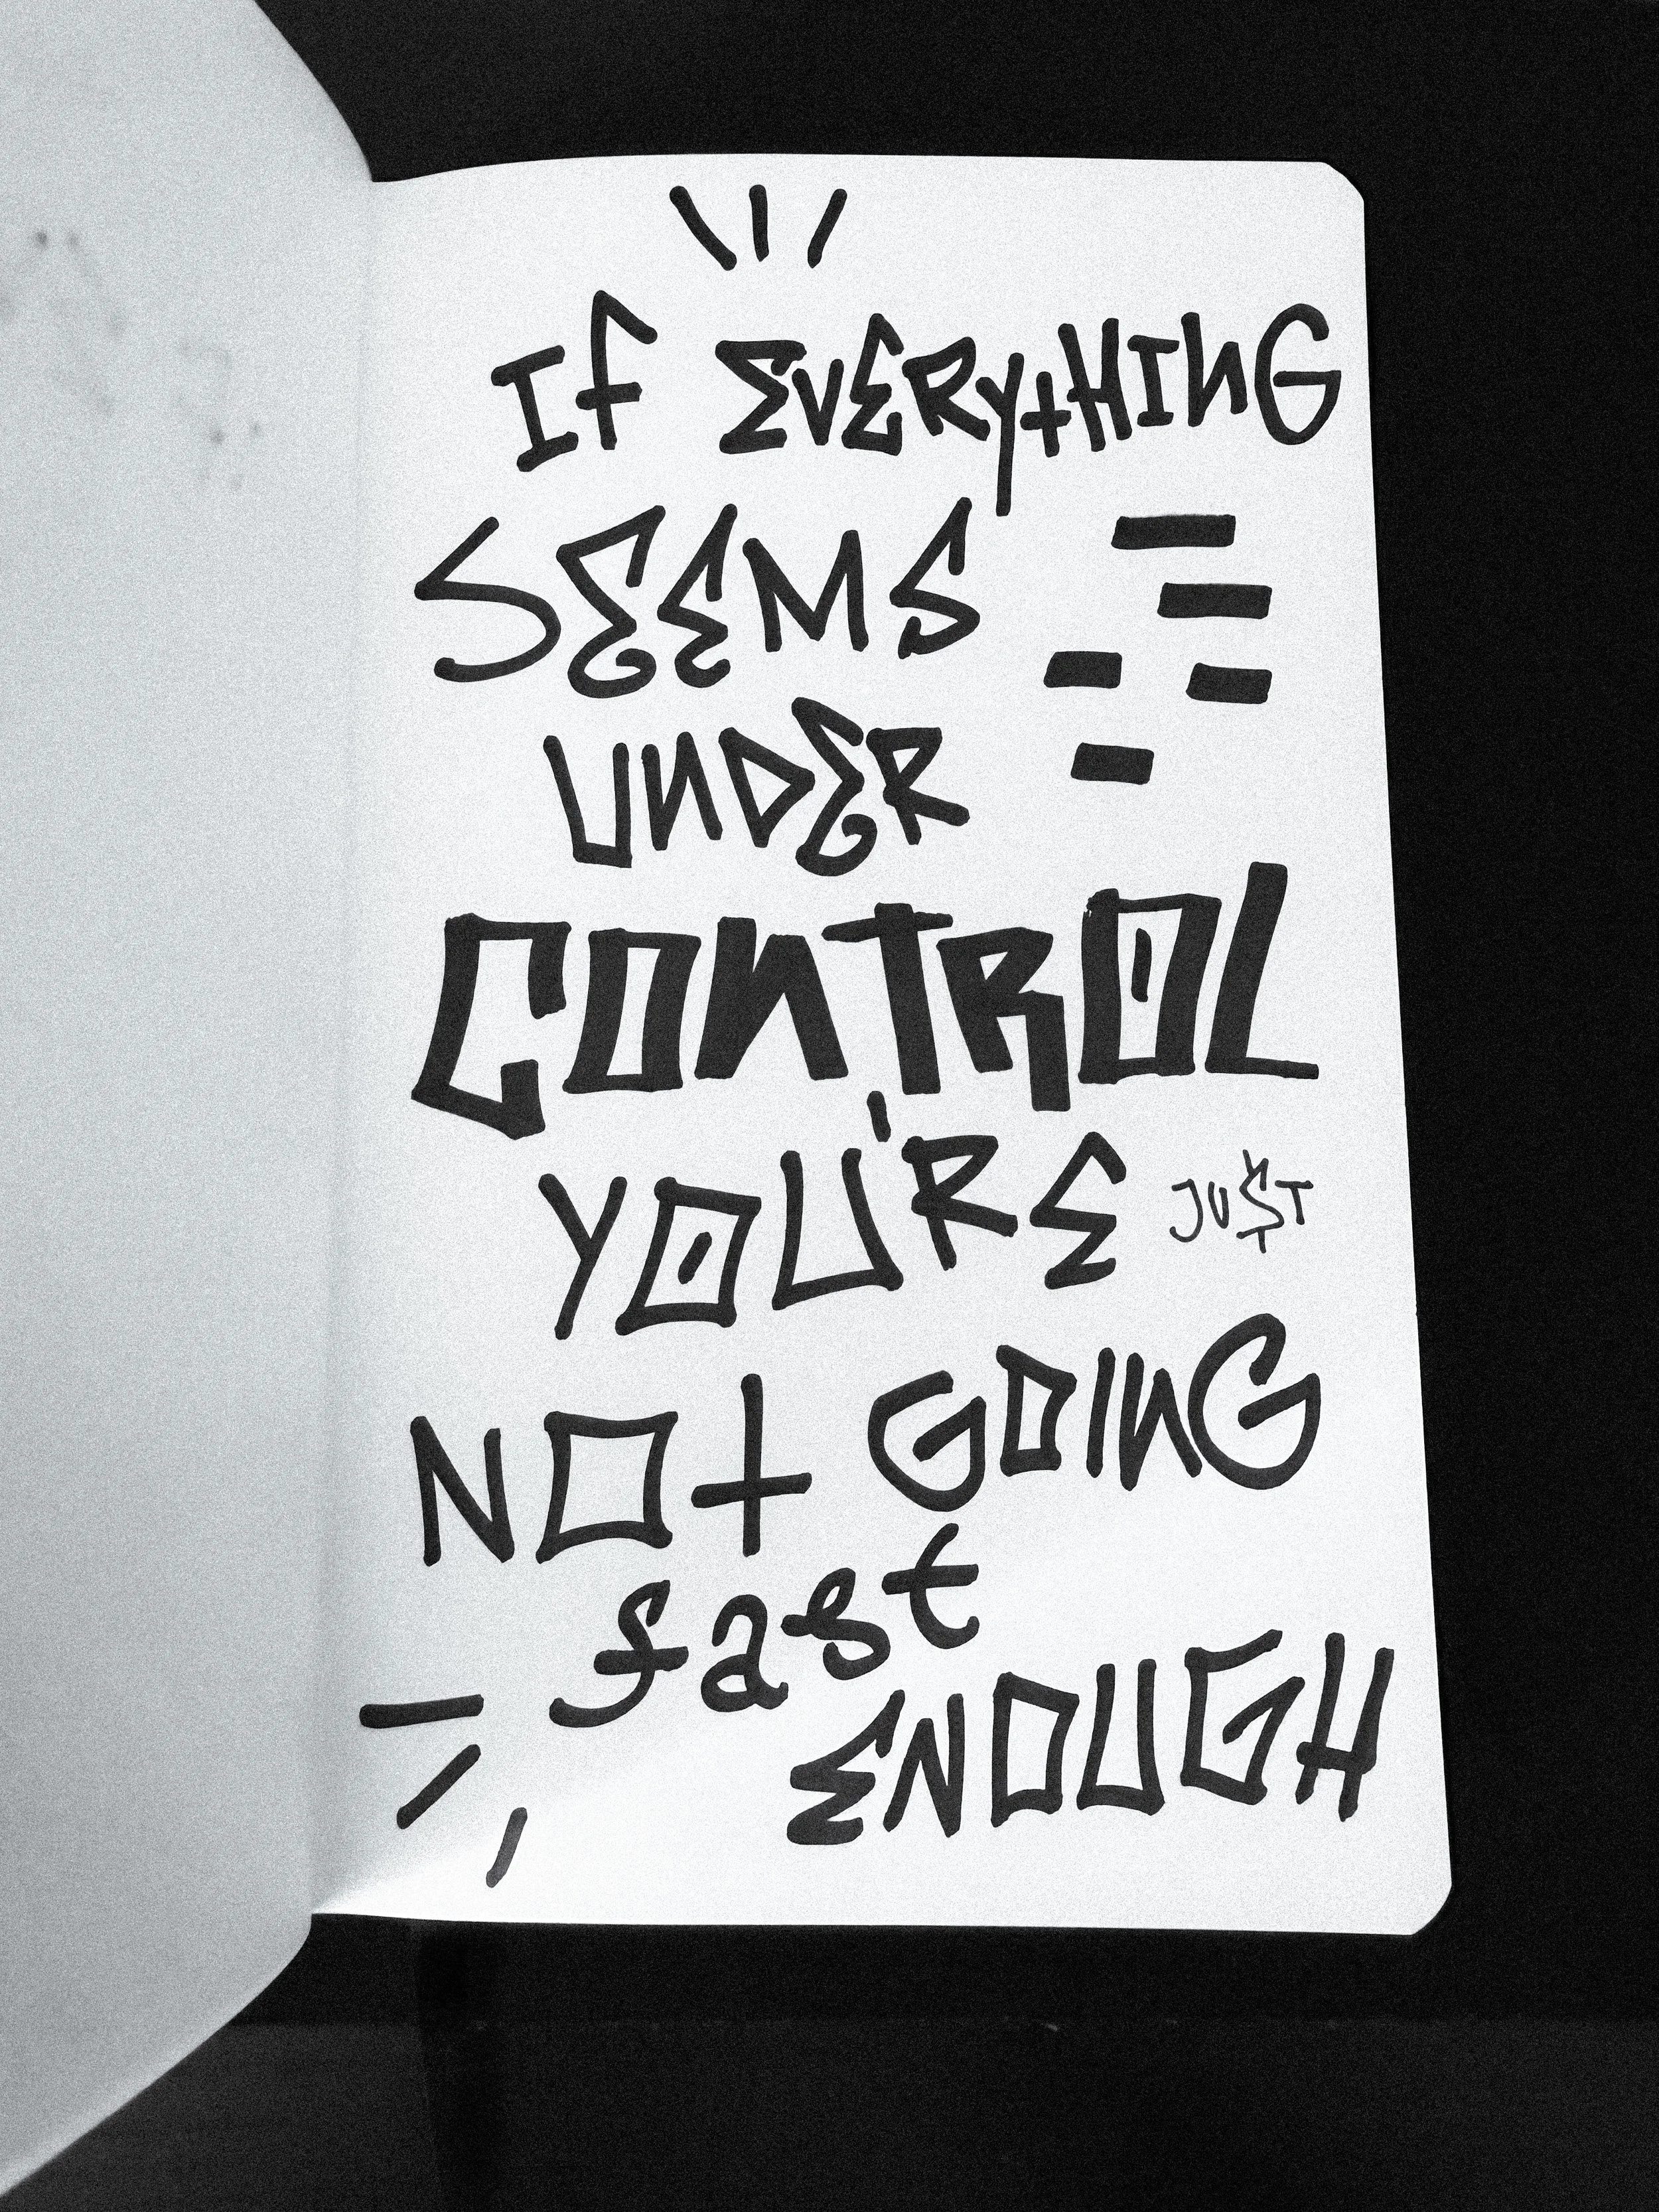 If EVERytHING
SEEMS
UNDER
CONTROL
YOU'RE JUST
NOt GOING
fast
ENOUGH